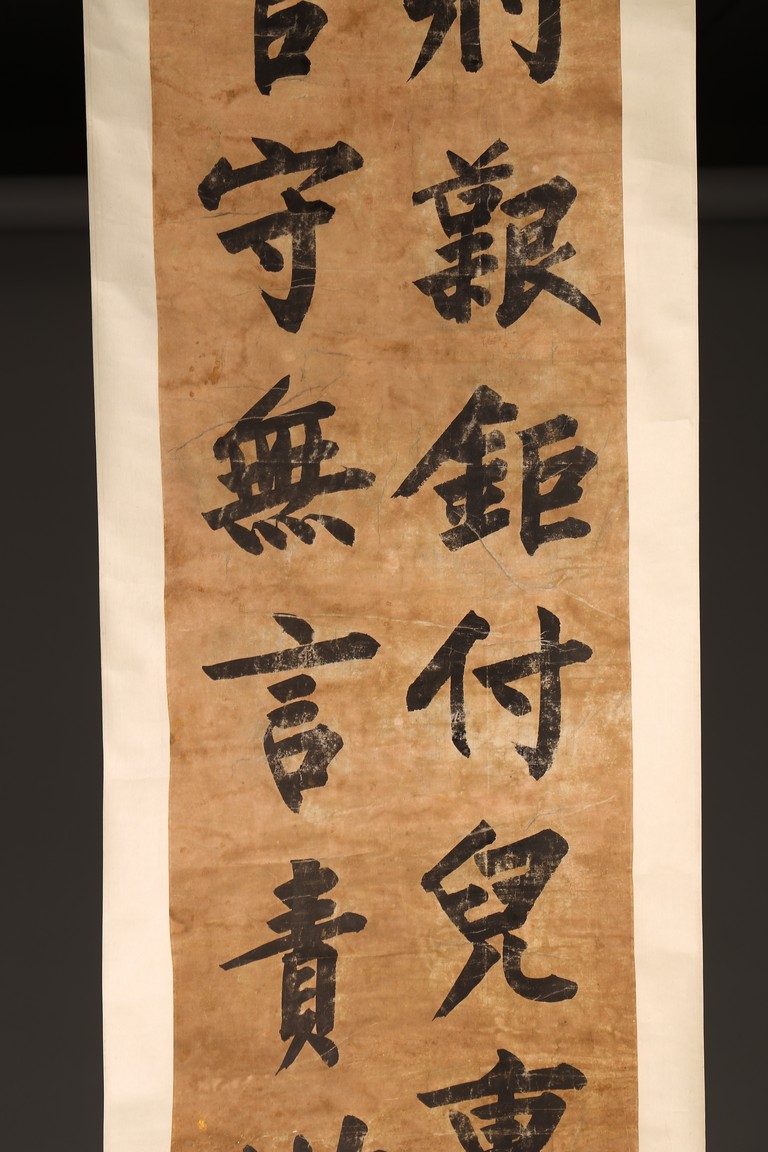 艱鉅付兒
守無言責